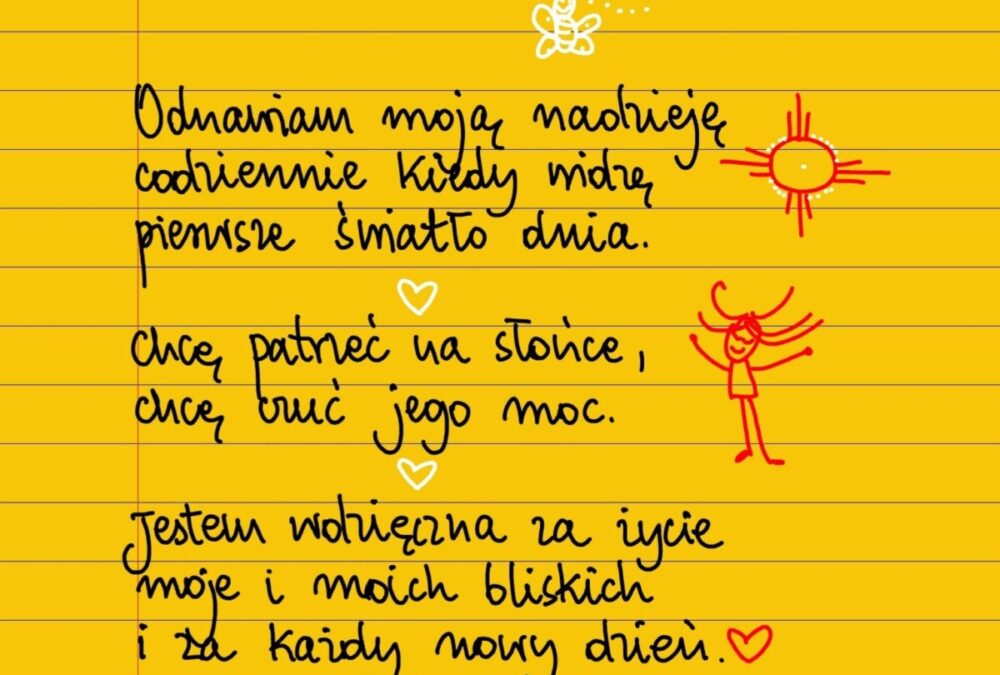 Odnawiam moją nadzieję
codziennie kiedy widzę
pierwsze światło dnia.
chcę patrzeć na słońce,
chcę czuć jego moc.
Jestem wdzięczna za życie
moje i moich bliskich
i za każdy nowy dzień.